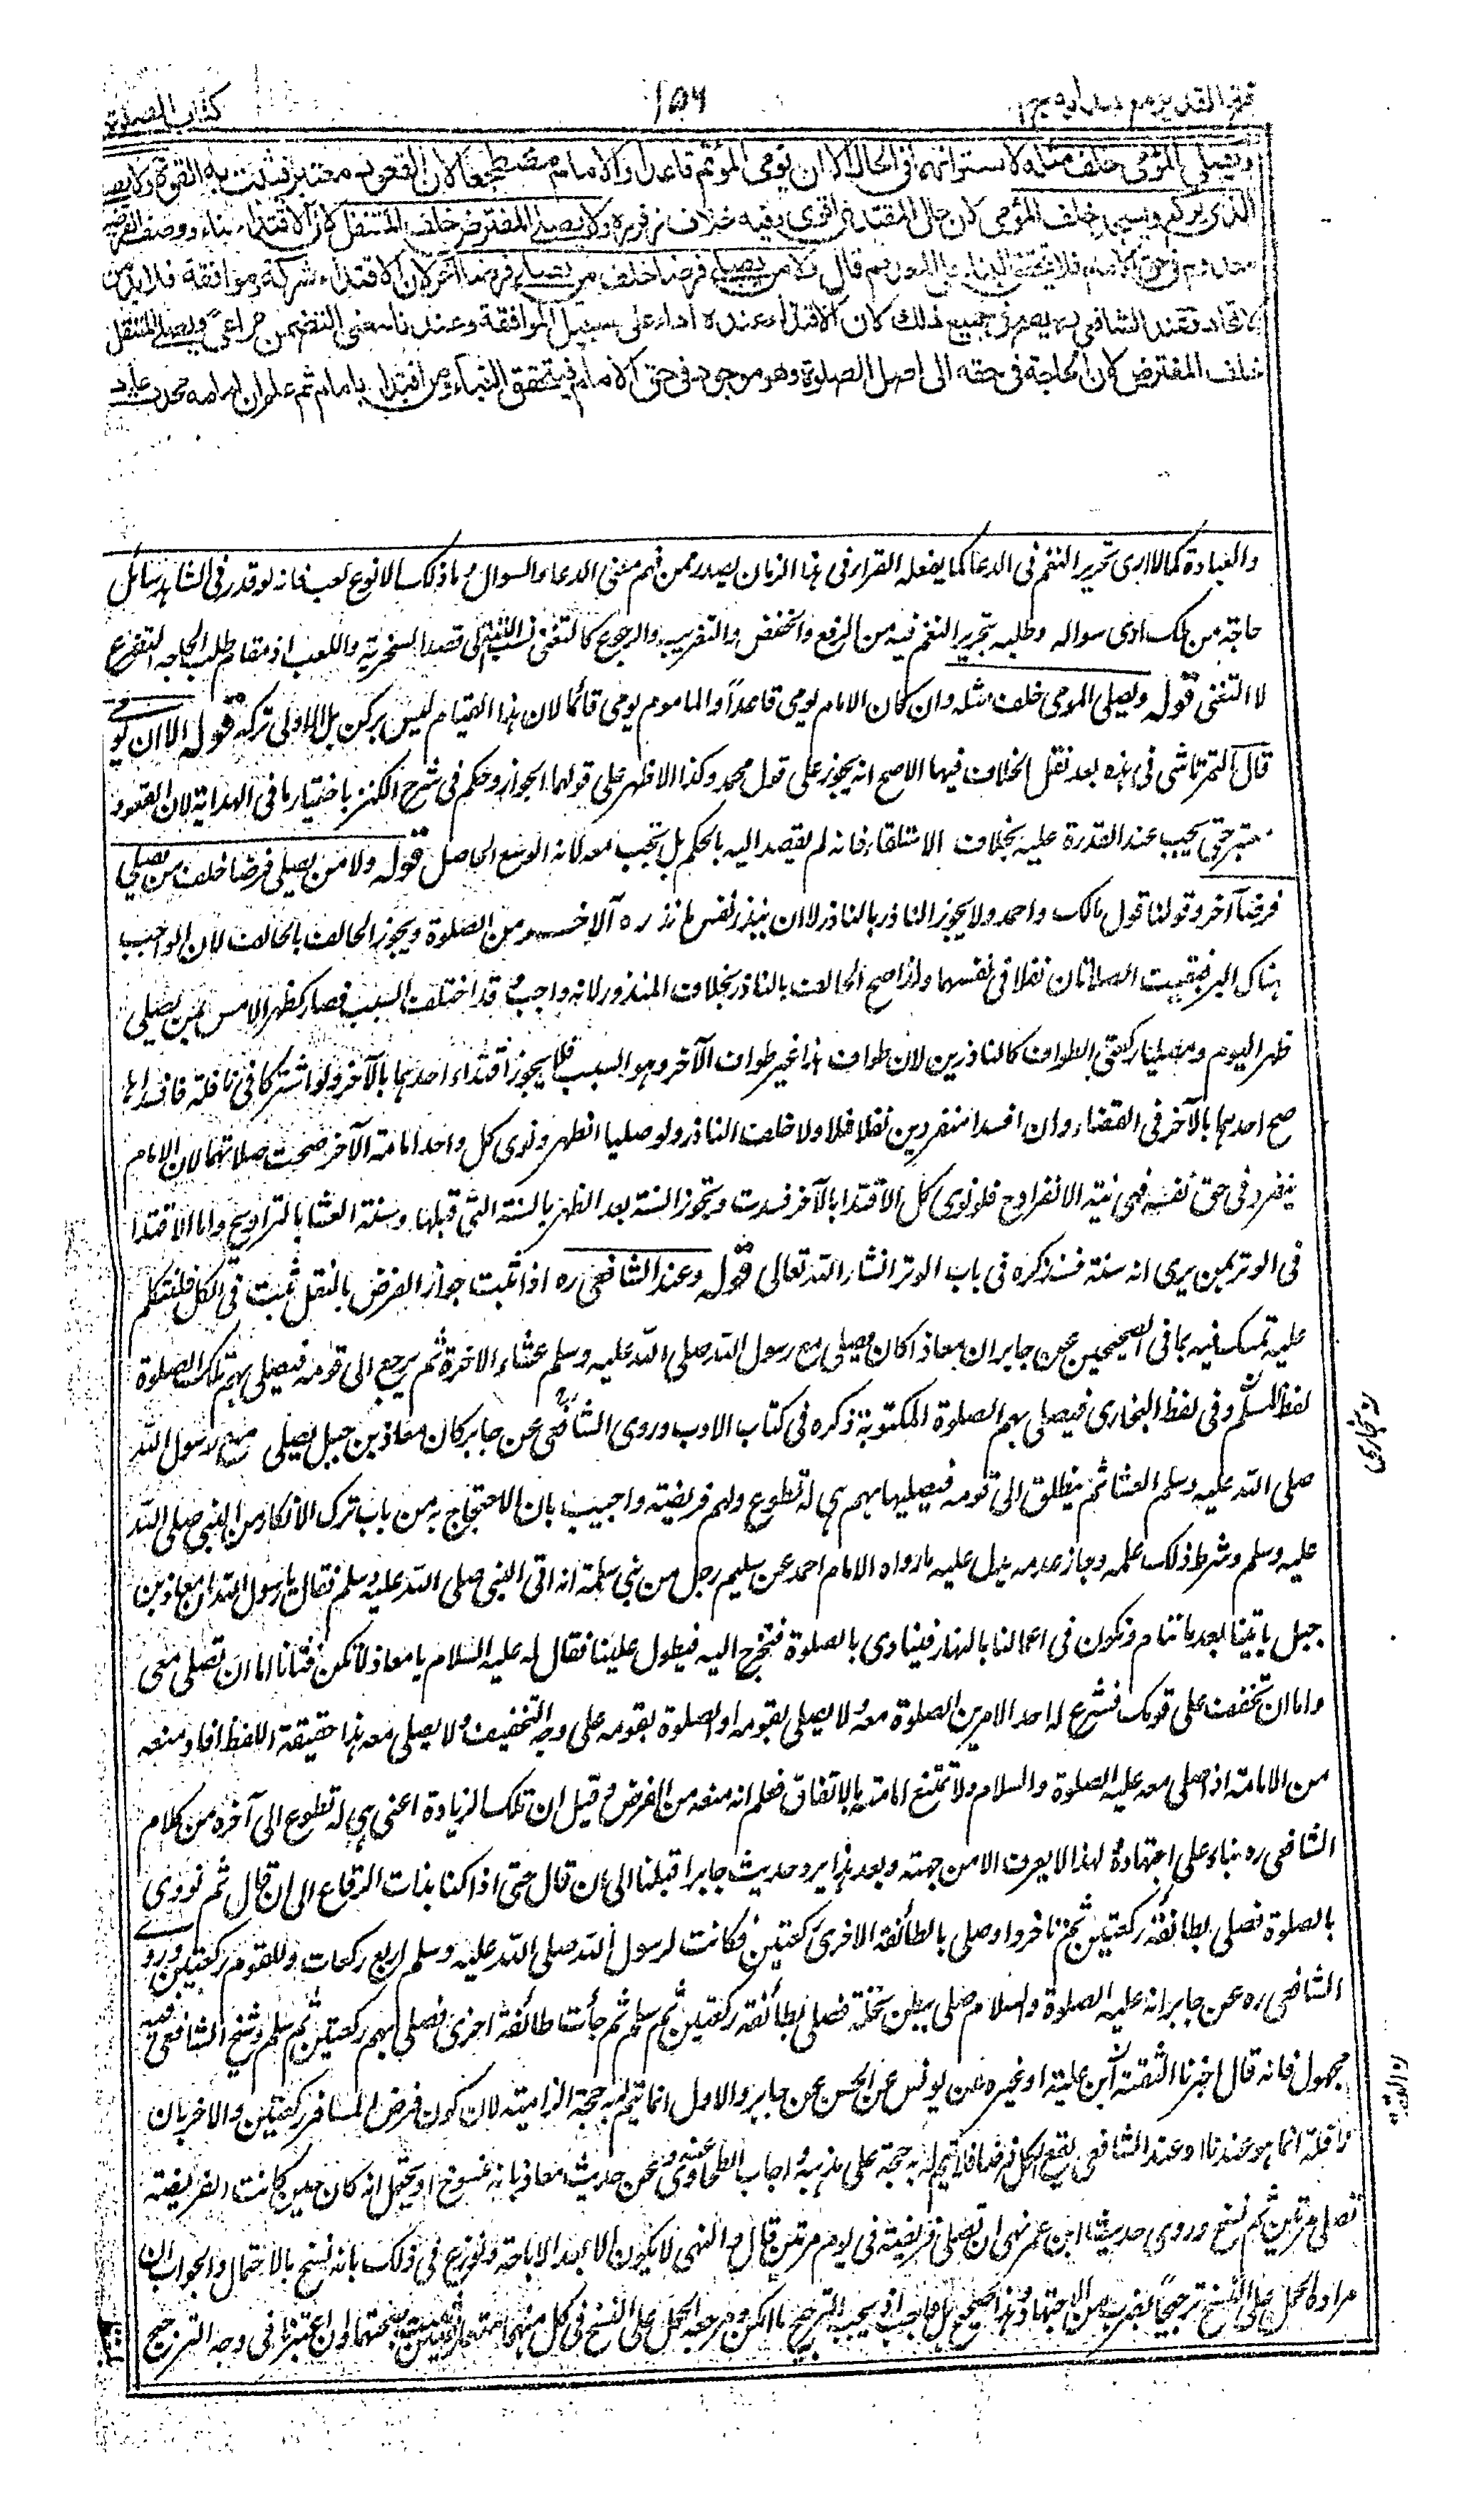 فتح القدير مع هدايه ج ١
١٥٦
كتاب الصلوة
ويصلى المؤمى خلف مثله لاستوائهما فى الحال الا ان يؤمى المؤتم قاعدا والامام مضطجعا لان القعود معتبر فتثبت به القوة ولا يصلى
الذى يركع ويسجد خلف المؤمى لان حال المقتدى اقوى وفيه خلاف زفر ره ولا يصلى المفترض خلف المتنفل لان الاقتداء بناء ووصف الفرضية
معدوم فى حق الامام فلا يتحقق البناء على المعدوم قال ولا من يصلى فرضا خلف من يصلى فرضا آخر لان الاقتداء شركة وموافقة فلا بد من
الاتحاد وعند الشافعى يصح فى جميع ذلك لان الاقتداء عنده اداء على سبيل الموافقة وعندنا معنى التضمن مراعى ويصلى المتنفل
خلف المفترض لان الحاجة فى حقه الى اصل الصلوة وهو موجود فى حق الامام فيتحقق البناء ومن اقتدى بامام ثم علم ان امامه محدث اعاد
والعبادة كما لا ارى تحرير النغم فى الدعا كما يفعله القراء فى هذا الزمان يصدر ممن فهم معنى الدعاء والسوال وما ذلك الا نوع لعب فانه لو قدر فى الشاهد سائل
حاجة من ملك ادى سواله وطلبه بتحرير النغم فيه من الرفع والخفض والتغريب والرجوع كالتغنى نسب البتة الى قصد السخرية واللعب اذ مقام طلب الحاجه التضرع
لا التغنى قوله ويصلى المومى خلف مثله وان كان الامام يومى قاعداً والماموم يومى قائما لان هذا القيام ليس بركن بل الاولى تركه قوله الا ان يو مى
قال التمرتاشى فى هذه بعد نقل الخلاف فيها الاصح انه يجوز على قول محمد وكذا الاظهر على قولهما الجواز وحكم فى شرح الكنز باختيار ما فى الهداية لان القعود
معتبر حتى يجب عند القدرة عليه بخلاف الاستلقاء فانه لم يقصد اليه بالحكم بل تجب معه لانه الوسع الحاصل قوله ولا من يصلى فرضا خلف من يصلي
فرضا آخر وقولنا قول مالك واحمد ولا يجوز الناذر بالناذر لا ان ينذر نفس ما نذره الآخر من الصلوة ويجوز الحالف بالحالف لان الواجب
هناك البر فبقيت الصلاتان نفلا فى نفسهما ولذا صح الحالف بالناذر بخلاف المنذور لانه واجب وقد اختلف السبب فصار كظهر الامس بمن يصلى
ظهر اليوم ومصليا ركعتى الطواف كالناذرين لان طواف هذا غير طواف الآخر وهو السبب فلا يجوز اقتداء احدهما بالآخر ولو اشتركا فى نافلة فافسداها
صح احدهما بالآخر فى القضاء وان افسدا منفردين نفلا فلا ولا خلف الناذر ولو صليا الظهر ونوى كل واحد امامة الآخر صحت صلاتهما لان الامام
ينفرد فى حق نفسه فهى نية الانفراد ح فلو نوى كل الاقتدا بالآخر فسدت وتجوز السنة بعد الظهر بالسنة التى قبلها وسنة العشا بالتراويح واما الاقتدا
فى الوتر بمن يرى انه سنة فسنذكره فى باب الوتر انشاء الله تعالى قوله وعند الشافعى ره اذا ثبت جواز الفرض بالنفل ثبت فى الكل فلنتكلم
عليه تمسك فيه بما فى الصحيحين عن جابر ان معاذا كان يصلى مع رسول الله صلى الله عليه وسلم عشاء الاخرة ثم يرجع الى قومه فيصلى بهم تلك الصلوة
لفظ المسلم وفى لفظ البخارى فيصلى بهم الصلوة المكتوبة ذكره فى كتاب الادب وروى الشافعى عن جابر كان معاذ بن جبل يصلى مع رسول الله
صلى الله عليه وسلم العشا ثم ينطلق الى قومه فيصليها بهم هى له تطوع ولهم فريضة واجيب بان الاحتجاج به من باب ترك الانكار من النبى صلى الله
عليه وسلم وشرط ذلك علمه وجاز عدمه يدل عليه ما رواه الامام احمد عن سليم رجل من بنى سلمة انه اتى النبى صلى الله عليه وسلم فقال يا رسول الله ان معاذ بن
جبل ياتينا بعد ما ننام ونكون فى اعمالنا بالنهار فينادى بالصلوة فنخرج اليه فيطول علينا فقال له عليه السلام يا معاذ لا تكن فتانا اما ان تصلى معى
واما ان تخفف على قومك فشرع له احد الامرين الصلوة معه ولا يصلى بقومه او الصلوة بقومه على وجه التخفيف ولا يصلى معه هذا حقيقة اللفظ افاد منعه
من الامامة اذا صلى معه عليه الصلوة والسلام ولا تمتنع امامته بالاتفاق فعلم انه منعه من الفرض وقيل ان تلك الزيادة اعنى هى له تطوع الى آخره من كلام
الشافعى ره بناء على اجتهاده لهذا لا يعرف الا من جهته وبعد هذا يرد حديث جابر اقبلنا الى ان قال حتى اذا كنا بذات الرقاع الى ان قال ثم نودى
بالصلوة فصلى بطائفة ركعتين ثم تاخروا وصلى بالطائفة الاخرى ركعتين فكانت لرسول الله صلى الله عليه وسلم اربع ركعات وللقوم ركعتين وروى
الشافعى ره عن جابر انه عليه الصلوة والسلام صلى ببطن نخلة فصلى بطائفة ركعتين ثم سلم ثم جاءت طائفة اخرى فصلى بهم ركعتين ثم سلم وشيخ الشافعى فيه
مجهول فانه قال اخبرنا الثقة ابن علية او غيره عن يونس عن الحسن عن جابر والاول انما يتم له به حجة الزامية لان كون فرض المسافر ركعتين والاخريان
نافلة انما هو عندنا وعند الشافعى يقع الكل فرضا فلا يتم له به حجة على مذهبه واجاب الطحاوى عنه وعن حديث معاذ بانه منسوخ او يحتمل انه كان حين كانت الفريضة
تصلى مرتين ثم نسخ وروى حديث ابن عمر نهى ان تصلى فريضة فى يوم مرتين قال والنهى لا يكون الا بعد الاباحة ونوزع فى ذلك بانه نسخ بالاحتمال والجواب ان
مراده الحمل على النسخ ترجيحاً بضرب من الاجتهاد وهذا صحيح بل هو واجب اذ يجب الترجيح ما امكن ومرجعه الحمل على النسخ فى كل متعارضين بصحتهما وان اعتبرنا فى وجه الترجيح